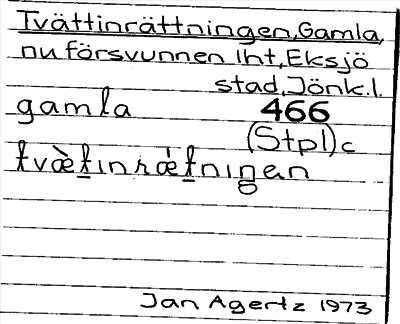 Tvättinrättningen, Gamla,
nu försvunnen lht, Eksjö
stad, Jönk.l.
gamla 466
(Stpl)c
tvæ̀t̲inrǽt̲niŋen
Jan Agertz 1973